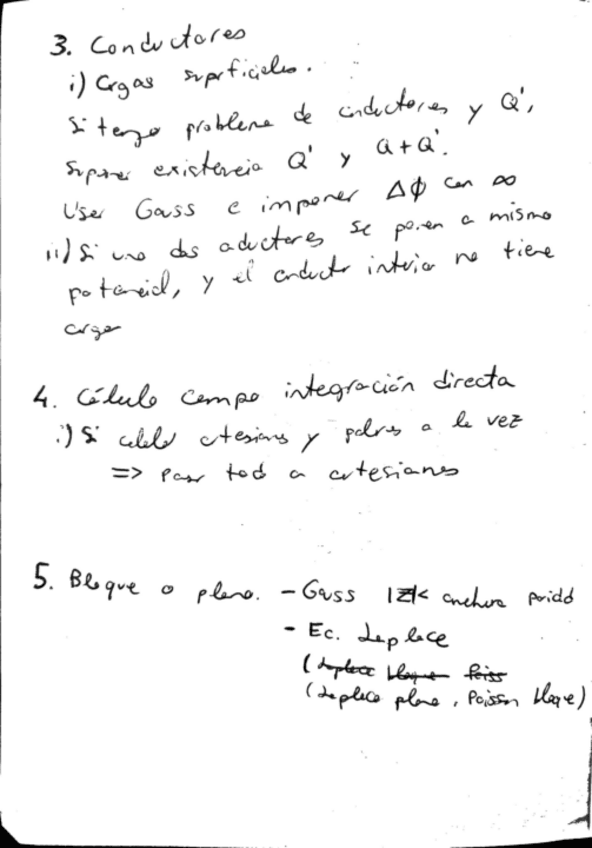 3. Conductores
i) Crgas suprficiales.
Si tengo problema de conductores y Q',
Suponer existencia Q' y Q+Q'.
User Gauss e imponer ΔΦ con ∞
ii) Si uno dos cductores se ponen a mismo
potencial, y el conductor interior no tiene
carga
4. Cálculo campo integración directa
i) Si cartesianas y polares a la vez
=> Pasar todo a cartesianas
5. Bloque o plano. - Gauss |z|< anchura
- Ec. Laplace
(Laplace bloque Poiss
(Laplace plano, Poisson bloque)